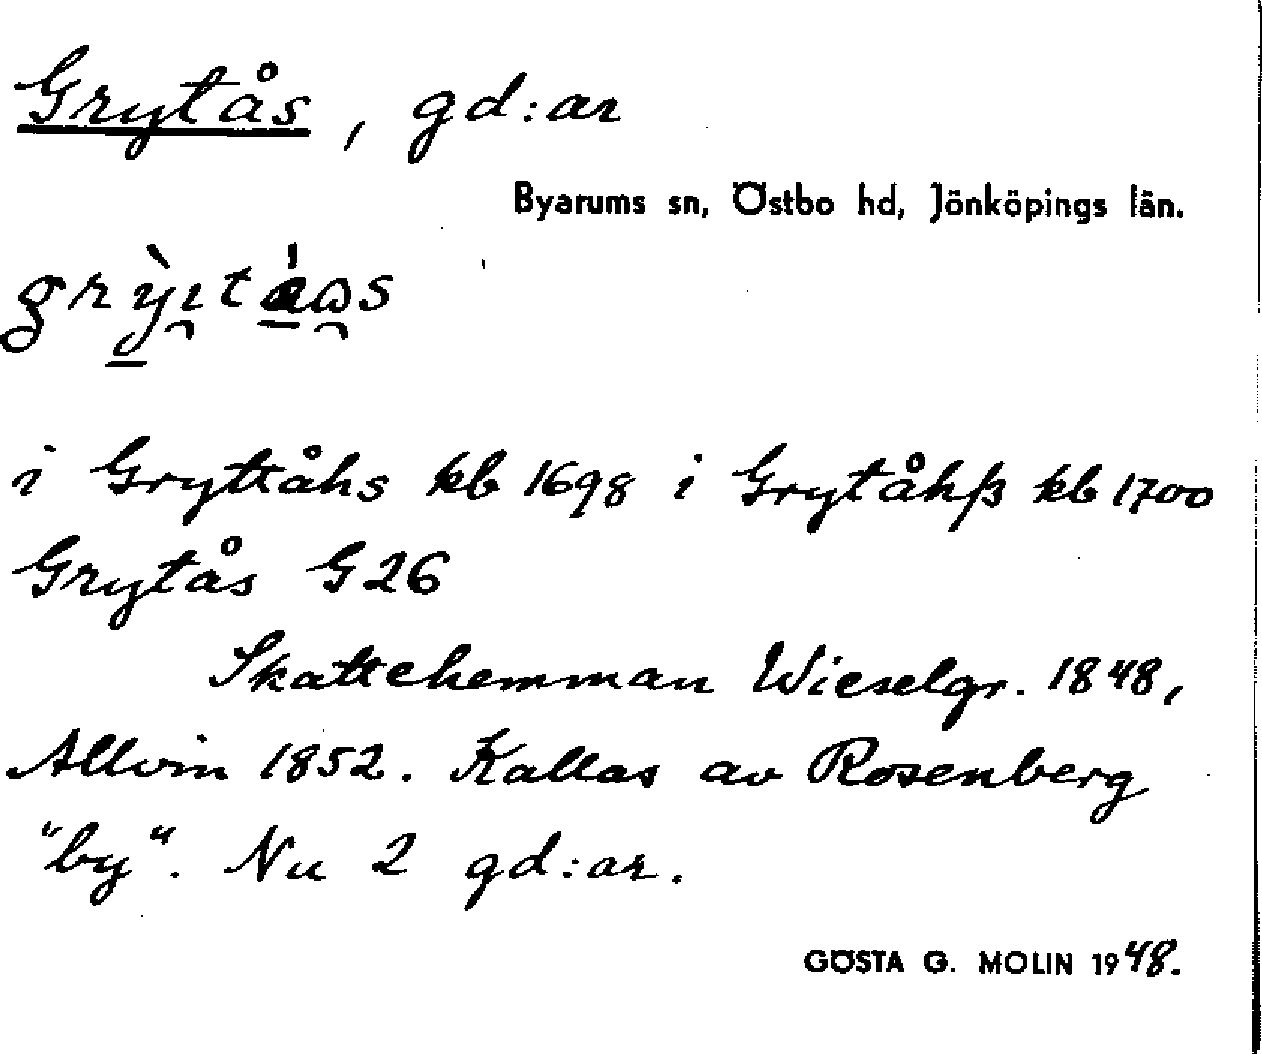 Grytås, gd:ar
Byarums sn, Östbo hd, Jönköpings län.
i Gryttåhs kb 1698 i Grytåhß kb 1700
Grytås G 26
Skattehemman Wieselgr. 1848,
Allvin 1852. Kallas av Rosenberg
"by". Nu 2 gd:ar.
GÖSTA G. MOLIN 1948.